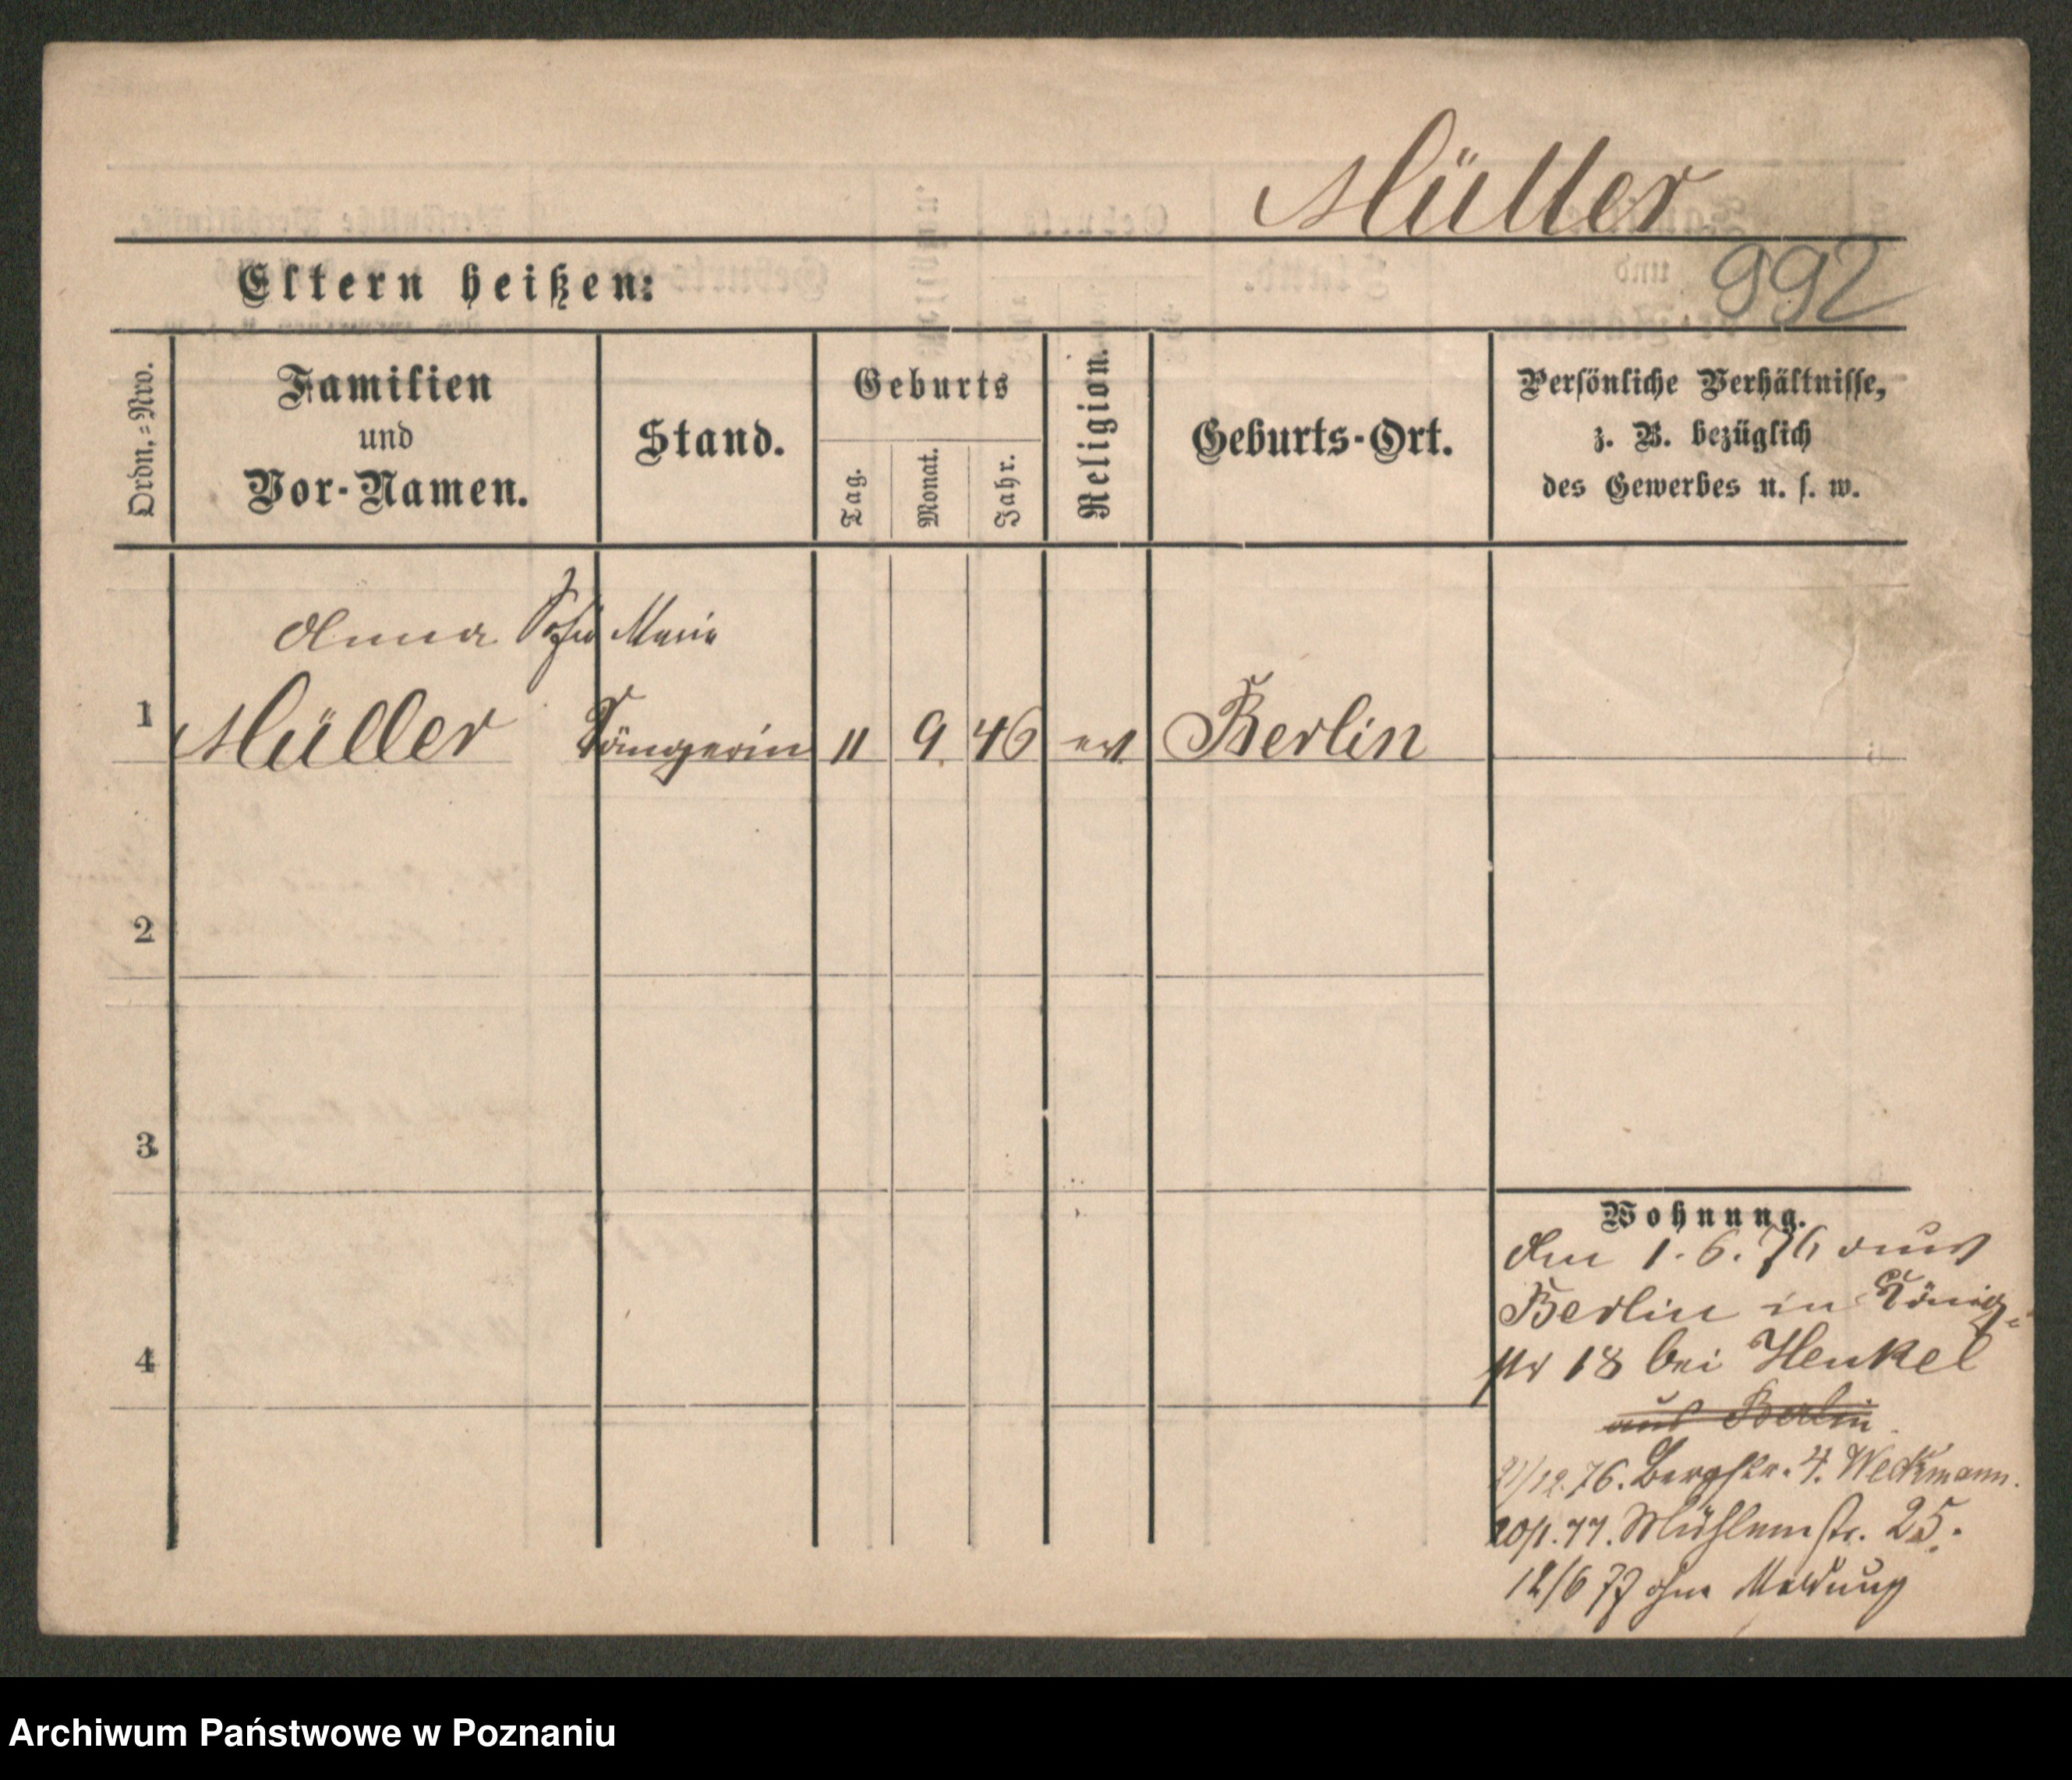 Müller
992
Eltern heißen:
Ordn.=Nro.
Familien
und
Vor-Namen.
Stand.
Geburts
Tag.
Monat.
Jahr.
Religion.
Geburts-Ort.
Persönliche Verhältnisse,
z. B. bezüglich
des Gewerbes u. s. w.
Anna Sofie Marie
1 Müller Sängerin 11 9 46 ev Berlin
2
3
4
Wohnung.
Am 1. 6. 76 aus
Berlin in König=
str 18 bei Henkel
aus Berlin
/12. 76. Bergstr. 4. Weckmann.
20/1. 77. Mühlenstr. 25.
12/6 77 ohne Meldung
Archiwum Państwowe w Poznaniu